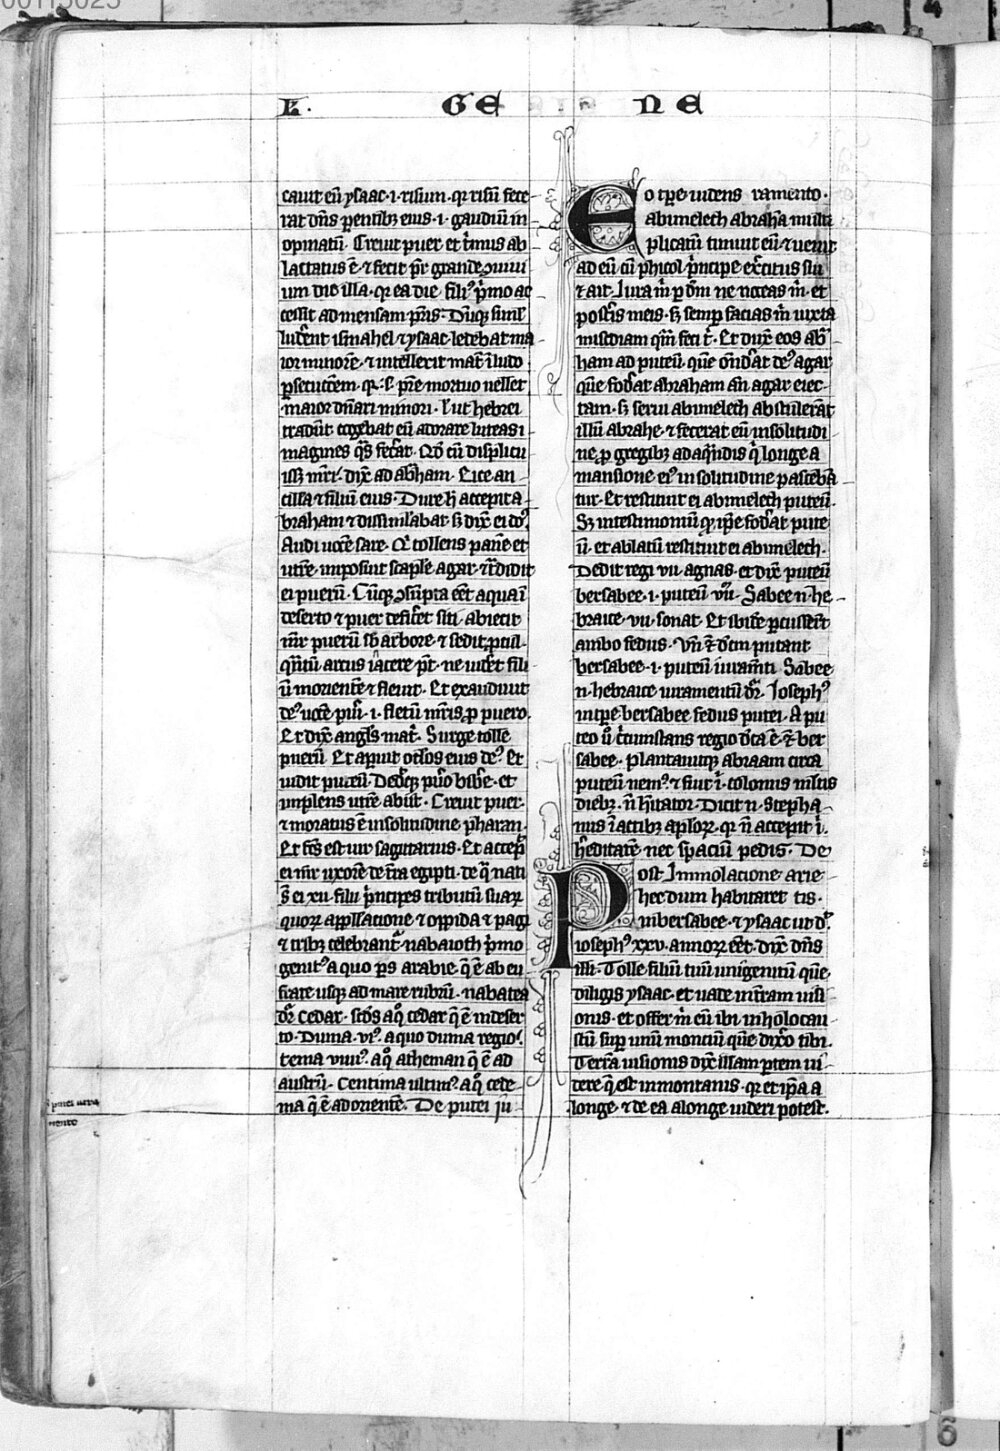 00113025
L. GE NE
cauit eū ysaac .i. risum. qr risū fece
rat dn̄s parentibꝫ eius .i. gaudiū in
opinatū. Creuit puer et t̾mus ab
lactatus ē ⁊ fecit pr̄ grande ꝯuiui
um die illa. qr ea die fili᾽ p̾mo ac
cessit ad mensam pr̄is. Dumqꝫ simł
luderent ismahel ⁊ ysaac ledebat ma
ior minorē. ⁊ intellexit mat̾ ī ludo
ꝑsecutōem. qꝛ .s. pr̄e mortuo uellet
maior dn̄ari minori. ł ut hebrei
tradūt cogebat eū adorare luteas i
magines qͣs fecerat. Qd̄ cū displicu
issꝫ mr̄i. dix̄ ad ab̄ham. Eice an
cillā ⁊ filium eius. Dure h̄ accepit a
braham ⁊ dissimulabat. sꝫ dix̄ ei de᾽
Audi uocē sare. Qͥ tollens panē et
utrē. imposuit scapule agar. ⁊ t̾didit
ei puerū. Cūqꝫ ꝯsūpta eēt aqua ī
deserto ⁊ puer deficeret siti. abiecit
mr̄ puerū sb̄ arbore. ⁊ sedit procul
qn̄tū arcus iacere pt̄. ne uidet̄ fili
ū morientē ⁊ fleuit. Et exaudiuit
de᾽ uocē pu̾i .i. fletū mr̄is ꝓ puero.
Et dix̄ angl̄s mat̾. Surge tolle
puerū. Et apuit oclos eius de᾽. Et
uidit puteū. Deditqꝫ pu̾o bibe̾. et
implens utrē abiit. Creuit puer.
⁊ moratus ē in solitudine pharan.
Et fc̄s est uir sagittarius. Et accep̄
ei mr̄ uxorē de t̾ra egipti. de qͣ nati
s̄ ei xii. filii p̾ncipes tribuū suaꝝ
quoꝝ appllatione ⁊ oppida ⁊ pagi
⁊ tribꝫ celebrant̾. nabaioth p̾mo
genit᾽ a quo ps̄ arabie. q̄ ē ab eu
frate usqꝫ ad mare rubrū. nabatea
dr̄. Cedar. scd̄s a qͦ cedar q̄ ē in deser
to. Duma. vi᾽. a quo duma regio.
tema viiii᾽. a qͦ atheman q̄ ē ad
austrū. Centima ultim᾽ a qͦ cede
ma q̄ ē ad orientē. De putei iu
putei iura
mento
Eo tp̄e uidens ramento.
abimelech abrahā multi
plicatū timuit eū ⁊ uenit
ad eū cū phicol p̾ncipe exercitus sui
⁊ ait. Iura m̄ ꝑ dm̄ ne noceas m̄. et
post̾is meis. sꝫ semꝑ facias m̄ iuxta
misc̄diam qm̄ feci t̾. Et dux̄ eos ab̄
ham ad puteū. quē ond̾at de᾽ agar
quē foderat abraham an̄ agar eiec
tam. sꝫ serui abimelech abstulerāt
illū abrahe. ⁊ fecerat eū in solitudi
ne. ꝓ gregibꝫ adaquādis qͥ longe a
mansione ei᾽ in solitudine pasceba
tur. Et restituit ei abimelech puteū.
Sꝫ in testimoniū qꝫ ipse foderat pute
ū. et ablatū restituit ei abimelech.
Dedit regi vii agnas. et dix̄ puteū
bersabee .i. puteū vii. Sabee n. he
braice. vii sonat. Et ibidē percusserūt
ambo fedus. Vn̄ ⁊ dc̄m putant
bersabee .i. puteū iuram̄ti. Sabee
n. hebraice iuramentū dr̄. Ioseph᾽
int̾pe. bersabee fedus putei. A pu
teo ū circūstans regio dc̄a ē. ⁊ ber
sabee. plantauitqꝫ abraam circa
puteū nem᾽. ⁊ fuit ī colonus multis
diebꝫ. n̄ hitator. Dicit n. stepha
nus ī actibꝫ apl̄oꝝ. qr n̄ accepit ī
h̄editatē nec spaciū pedis. De
Post Immolacione arie
hec dum habitaret tis.
ī bersabee. ⁊ ysaac ut d᾽.
ioseph᾽ xxv. annoꝝ eēt. dix̄ dn̄s
illi. Tolle filiū tuū unigenitū quē
diligis ysaac. et uade in t̾ram uisi
onis. et offer m̄ eū ibi in holocau
stū suꝑ unū montiū quē dix̾o tibi.
Terrā uisionis dix̄ illam ꝑtem iu
dee q̄ est in montanis. qr et ip̄a a
longe. ⁊ de ea a longe uideri potest.
6